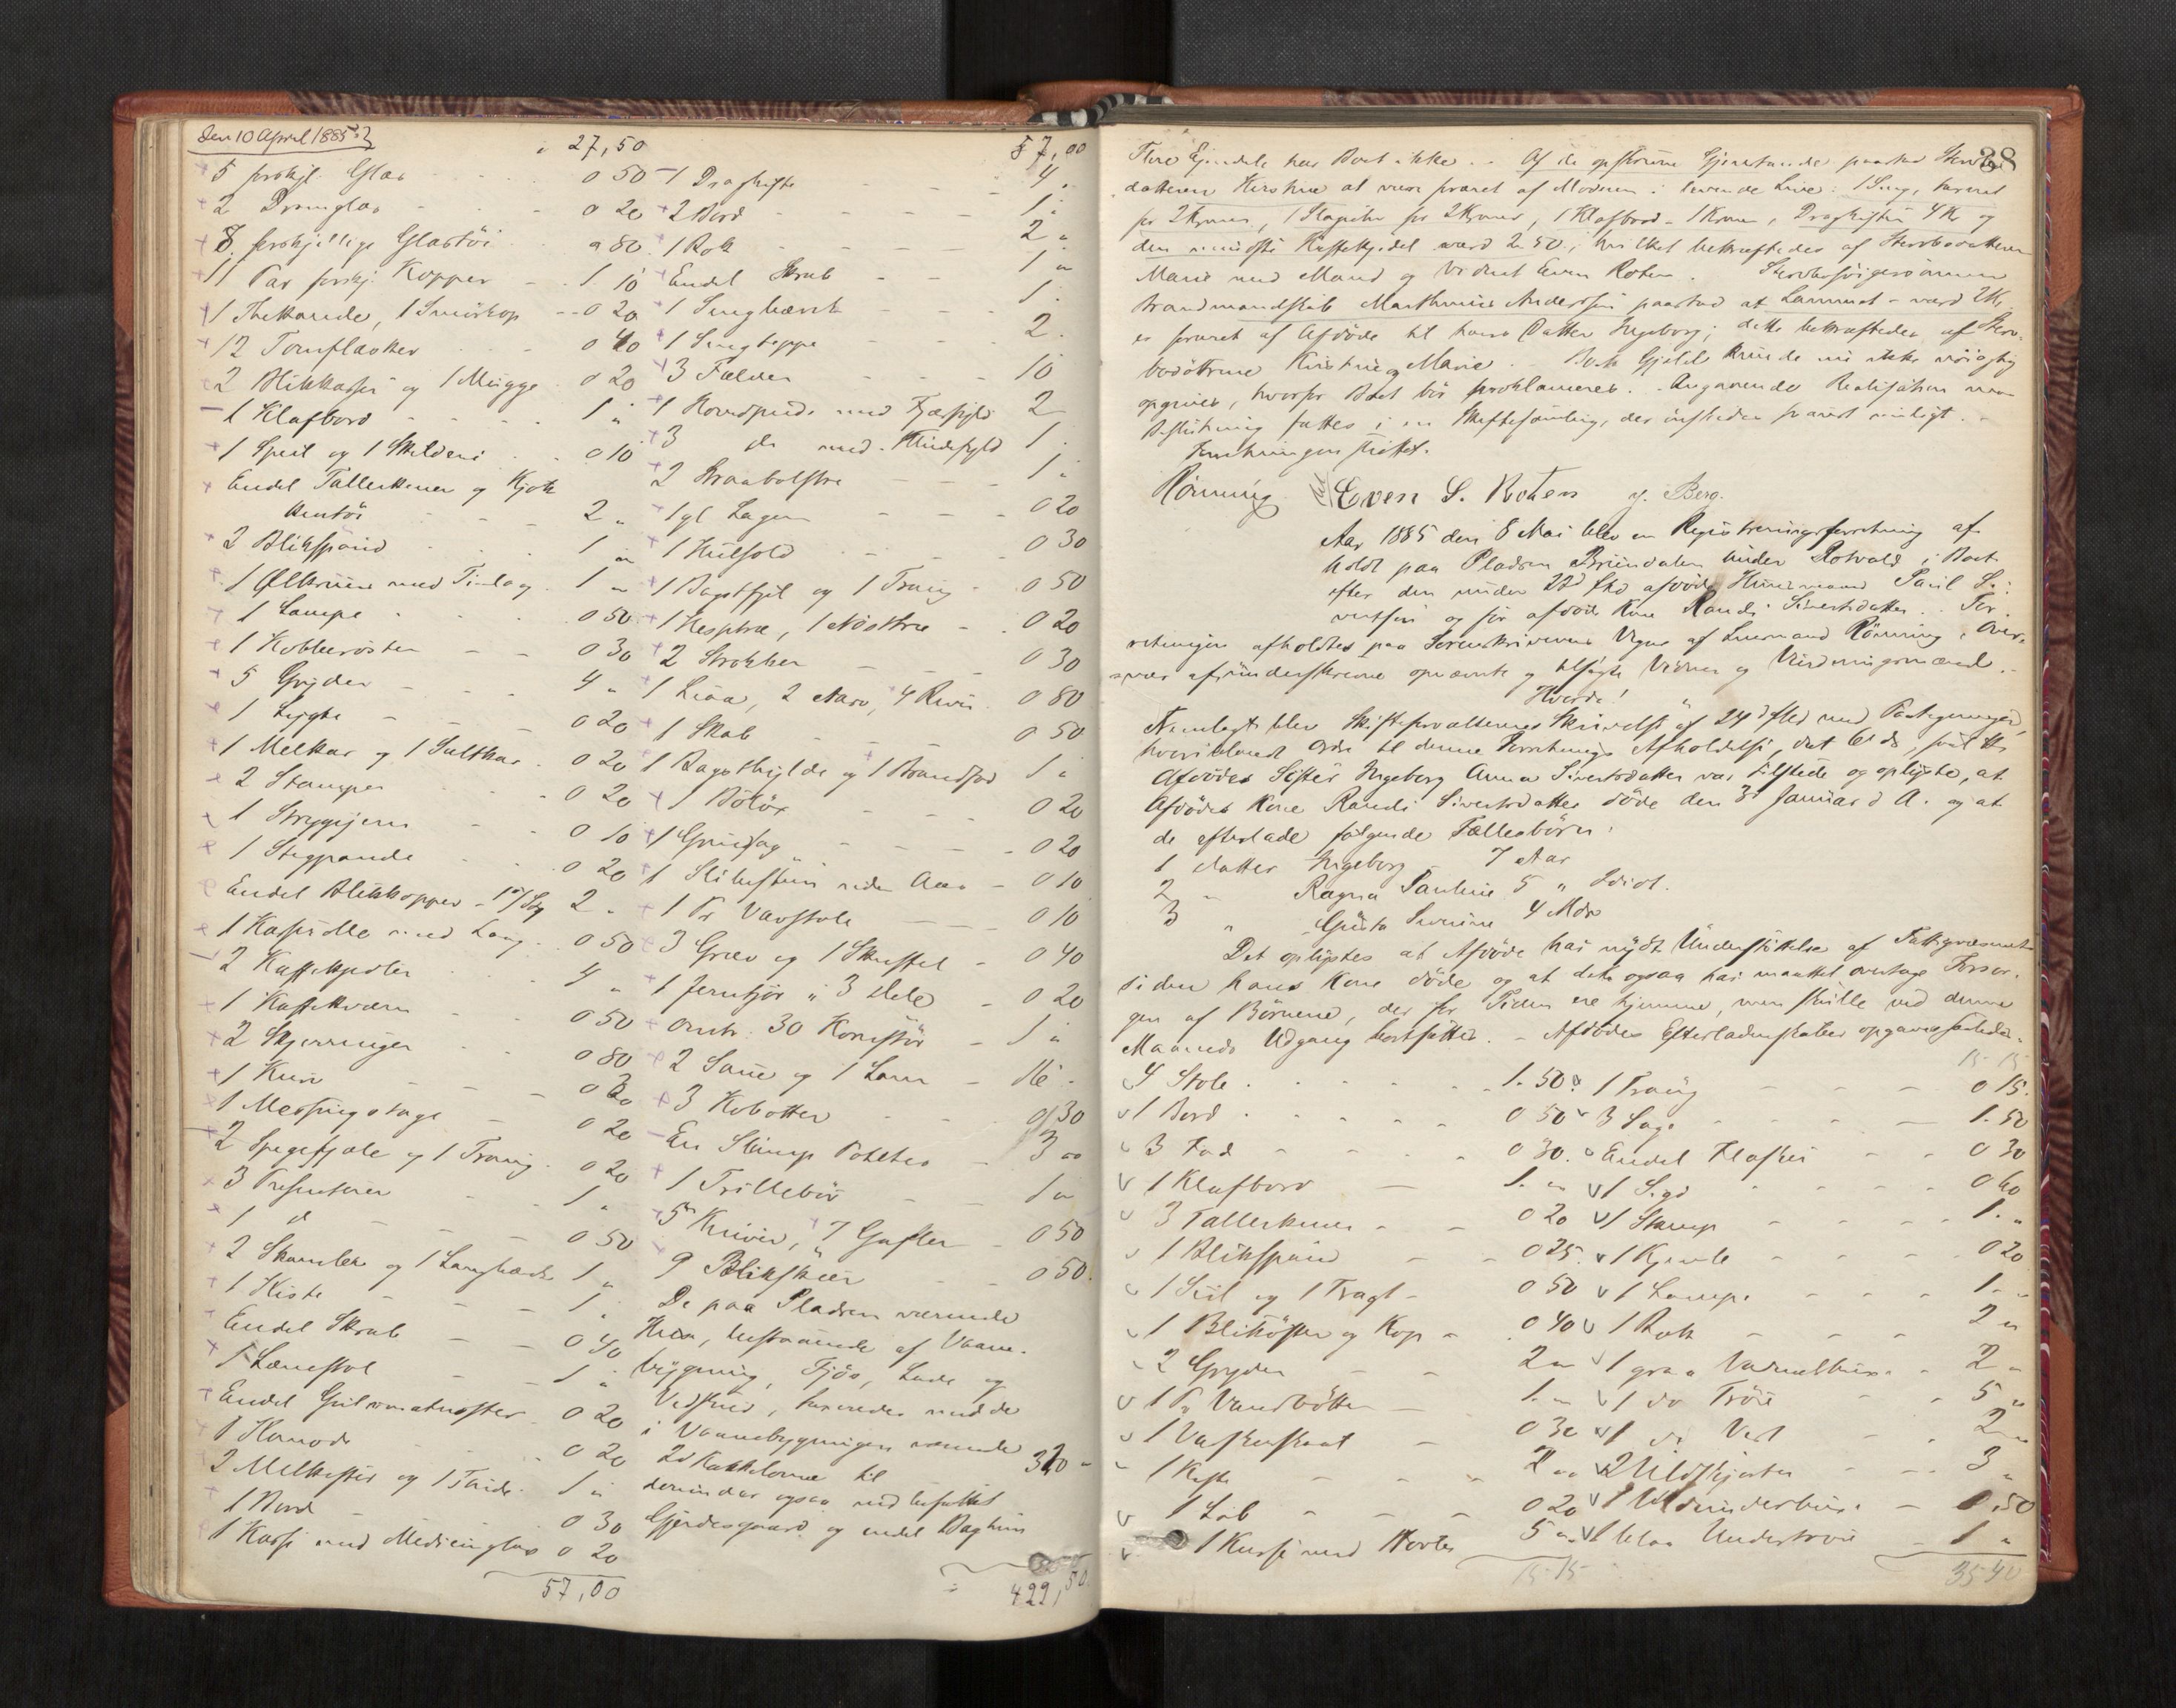 Den 10 April 1885
27,50
5 forskjl. Glas 0 50
2 Dramglas 0 20
8 forskjellige Glastöi 0 80
11 Par forskj. Kopper 1 10
1 Thekande, 1 Smörkop 0 20
12 Tomflasker 0 40
2 Blikkasser og 1 Mugge 0 20
1 Klafbord 1 "
1 Speil og 1 Skilderi 0 10
Endel Tallerkener og Kjök
kentöi 2 "
2 Blikspand 1 "
1 Ølkrus med Tinlaag 1 "
1 Lampe 0 50
1 Kobberöster 0 30
5 Gryder 4 "
1 Lygte 0 20
1 Melkar og 1 Saltkar 0 20
2 Stamper 0 20
1 Strygejern 0 10
1 Stegpande 0 20
Endel Blikkopper 2 "
1 Kaserolle med Laag 0 50
2 Kaffekjedler 4 "
1 Kaffekværn 0 50
2 Skjerringer 0 80
1 Kurv
1 Messingstage 0 20
2 Spegefjæle og 1 Traug 0 20
3 Presenterer 1 "
1 d 0 50
2 Skamler og 1 Langbænk 1 "
1 Kiste 1 "
Endel Skrab
1 Lænestol 1 "
Endel 0 20
1 Komode 0 20
2 og 1 1 "
1 Bord 0 30
1 Kasse med Medicinglas 0 20
57,00
57,00
1 Dragkiste 4 "
2 Bord 1 "
1 Rok 2 "
Endel Skrab 1 "
1 Sengbænk 1 "
1 Sengteppe 2 "
3 Fælder 10
1 Hovedpude med Fjærfyld 2
3 do med Kludefyld 1 "
2 Straabolstre 1 "
1 gl Lagen 0 20
1 Hulsold 0 30
1 Bagstfjel og 1 Traug 0 50
1 Hesptræ, 1 Nöstræ 0 20
2 Strokker 0 30
1 Liaa, 2 Aarv, 4 River 0 80
1 Skab 0 50
1 Bagsthylde og 1 Brandfod 1 "
1 Bölöx 0 20
1 Grindsag 0 20
1 Slibesten uden Aas 0 10
1 Pr Vævstole 0 10
3 Græv og 1 Skuffel 0 40
1 Jernstör i 3 Dele 0 20
Omtr. 30 Kornstör 1 "
2 Sauer og 1 Lam 16 "
3 Kobotter 0 30
En Slump Poteter 3 "
1 Trillebör 1 "
5 Kniver, 7 Gafler 0 50
9 Blikskeer 0 50
De paa Pladsen værende
Huse, bestaaende af Vaane-
bygning, Fjös, Lade og
Vedskur, taxeredes med de
i Vaanebygningen værende
2 Kakkelovne til
derunder ogsaa indbefattet
Gjerdesgaard og endel Baghun
422,50
38
Flere Ejendele har Boet ikke. Af de opskrevne Gjenstande paastod Stervbo-
datteren Kirstine at være foræret af Moderen i levende Live: 1 Seng, taxeret
for 2 Kroner, 1 for 2 Kroner, 1 Klafbord 1 Krone, Dragkisten 4 Kr og
den mindste Kaffekjedel værd 2.50, hvilket bekræftedes af Stervbodatteren
Marie med Mand og Vidnet Even Roten. Stervbosvigersönnen
Strandmandskab Marthinus Anderssen paastod at Lammet – værd 2 Kr,
er foræret af Afdöde til hans Datter Ingeborg; dette bekræftedes af Sterv-
bodöttrene Kirstine og Marie. Boets Gjeld kunde nu ikke nöiagtig
opgives, hvorfor Boet bör proklameres. Angaaende Realisation maa
Beslutning fattes i en Skiftesamling, der önskedes snarest muligt.
Forretningen sluttet.
Rönning Even S. Roten J. Berg.
Aar 1885 den 8 Mai blev en Registreringsforretning af-
holdt paa Pladsen Brundalen under Rotvold i Boet
efter den under 22d f. Md afdöde Husmand Paul Si-
vertsen og för afdöde Kone Randi Sivertsdatter. For-
retningen afholdtes paa Sorenskriverens Vegne af Lensmand Rönning i Over-
vær af underskrevne opnævnte og tilsagte Vidner og Vurderingsmænd.
Hvorda!
Fremlagt blev Skifteforvalterens Skrivelse af 24 d. f. Md med Paategninger,
hvoriblandt Ordre til denne Forretnings Afholdelse, dat 6t ds,
Afdödes Söster Ingeborg Anna Sivertsdatter var tilstede og oplyste, at
Afdödes Kone Randi Sivertsdatter döde den 3d Januar d A. og at
de efterlade fölgende Fællesbörn:
1 Datter Ingeborg 7 Aar
2 " Ragna Pauline 5 " Idiot.
3 " Gusta Severine 4 Mdr
Det oplystes at Afdöde har nydt Understöttelse af Fattigvæsenet
siden hans Kone döde og at dette ogsaa har maattet overtage Forsor-
gen af Börnene, der for Tiden ere hjemme, men skulle ved denne
Maaneds Udgang bortsættes. – Afdödes Efterladenskaber opgaves saaledes.
15 15
4 Stole 1. 50
1 Bord 0 50
3 Fad 0 30
1 Klafbord 1. "
3 Tallerkener 0 20
1 Blikspand 0 25
1 Siil og 1 Tragt 0 50
1 Bliköster og Kop 0 40
2 Gryder 2 "
1 Pr Vandbötter 1. "
1 0 30
1 Kiste 2 "
1 Lib 0 20
1 Kasse med Verktöi 5 "
15 15
1 Traug 0 15
3 Sage 1. 50
Endel Flasker 0 30
1 Sigd 0 60
1 Stamp 1. "
1 Kjerale 0 20
1 Lampe 1. "
1 Rok 2 "
1 graa Vadmelbuxe 2 "
1 do Tröie 5 "
1 do Vest 2 "
2 Uldskjorter 3 "
1 Uldunderbuxe 0.50
1 blaa Undertröie 1 "
35 40